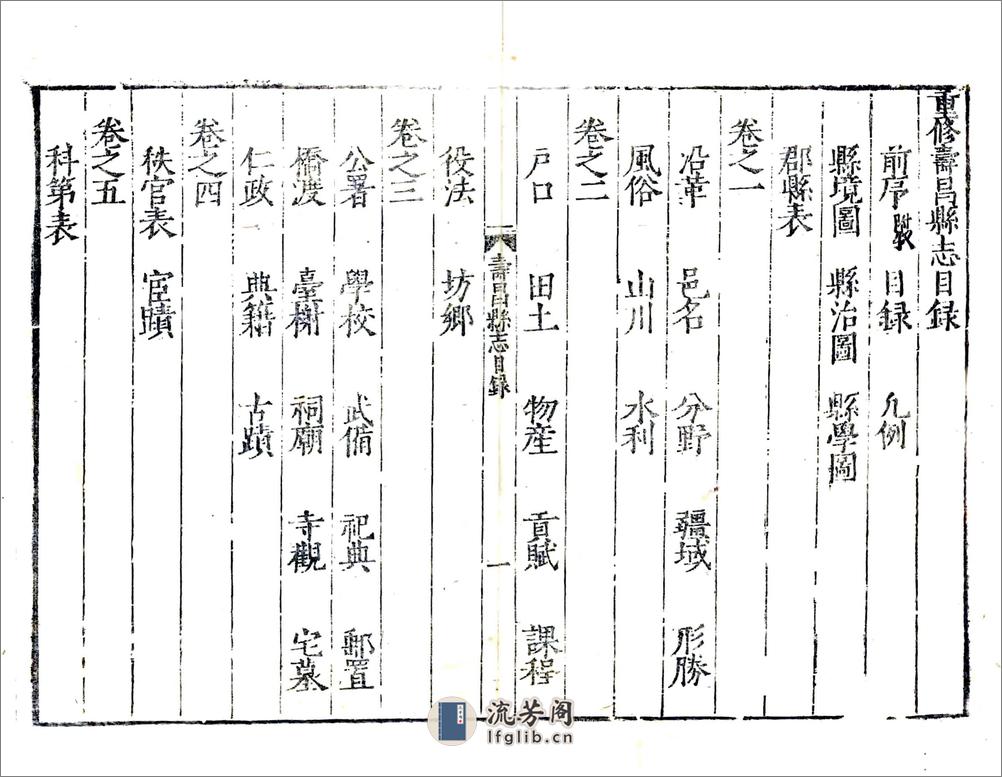 重修壽昌縣志目録
前序 附跋 目録 凡例
縣境圖 縣治圖 縣學圖
郡縣表
卷之一
沿革 邑名 分野 疆域 形勝
風俗 山川 水利
卷之二
戸口 田土 物産 貢賦 課程
壽昌縣志目録 一
役法 坊鄉
卷之三
公署 學校 武備 祀典 郵置
橋渡 臺榭 祠廟 寺觀 宅墓
仁政 典籍 古蹟
卷之四
秩官表 宦蹟
卷之五
科第表
流芳阁
lfglib.cn